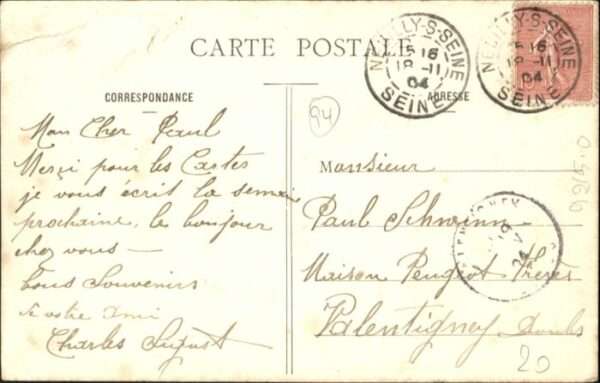 CARTE POSTALE
CORRESPONDANCE
ADRESSE
NEUILLY-S-SEINE
516
18-11
04
SEINE
NEUILLY-S-SEINE
516
18-11
04
SEINE
94
Mon Cher Paul
Merçi pour les Cartes
je vous écrit la semain
prochaine, le bonjour
chez vous —
Bons Souvenirs
de votre ami
Charles August
Monsieur
Paul Schwinn
Maison Peugeot Frères
Valentigney Doubs
92/5.0
20